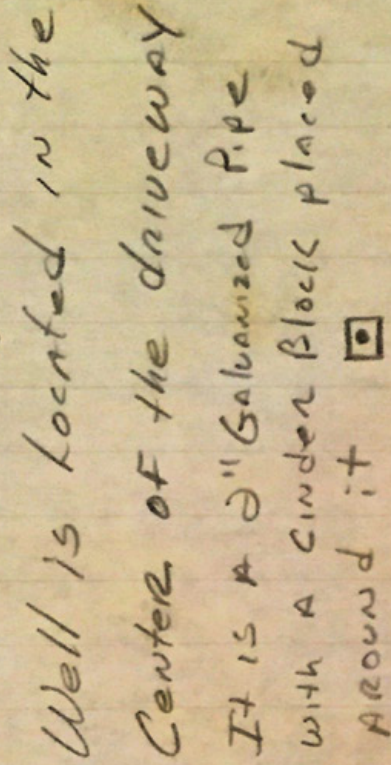 Well is Located in the
Center of the driveway
It is A 2" Galvanized Pipe
with A cinder Block placed
Around it